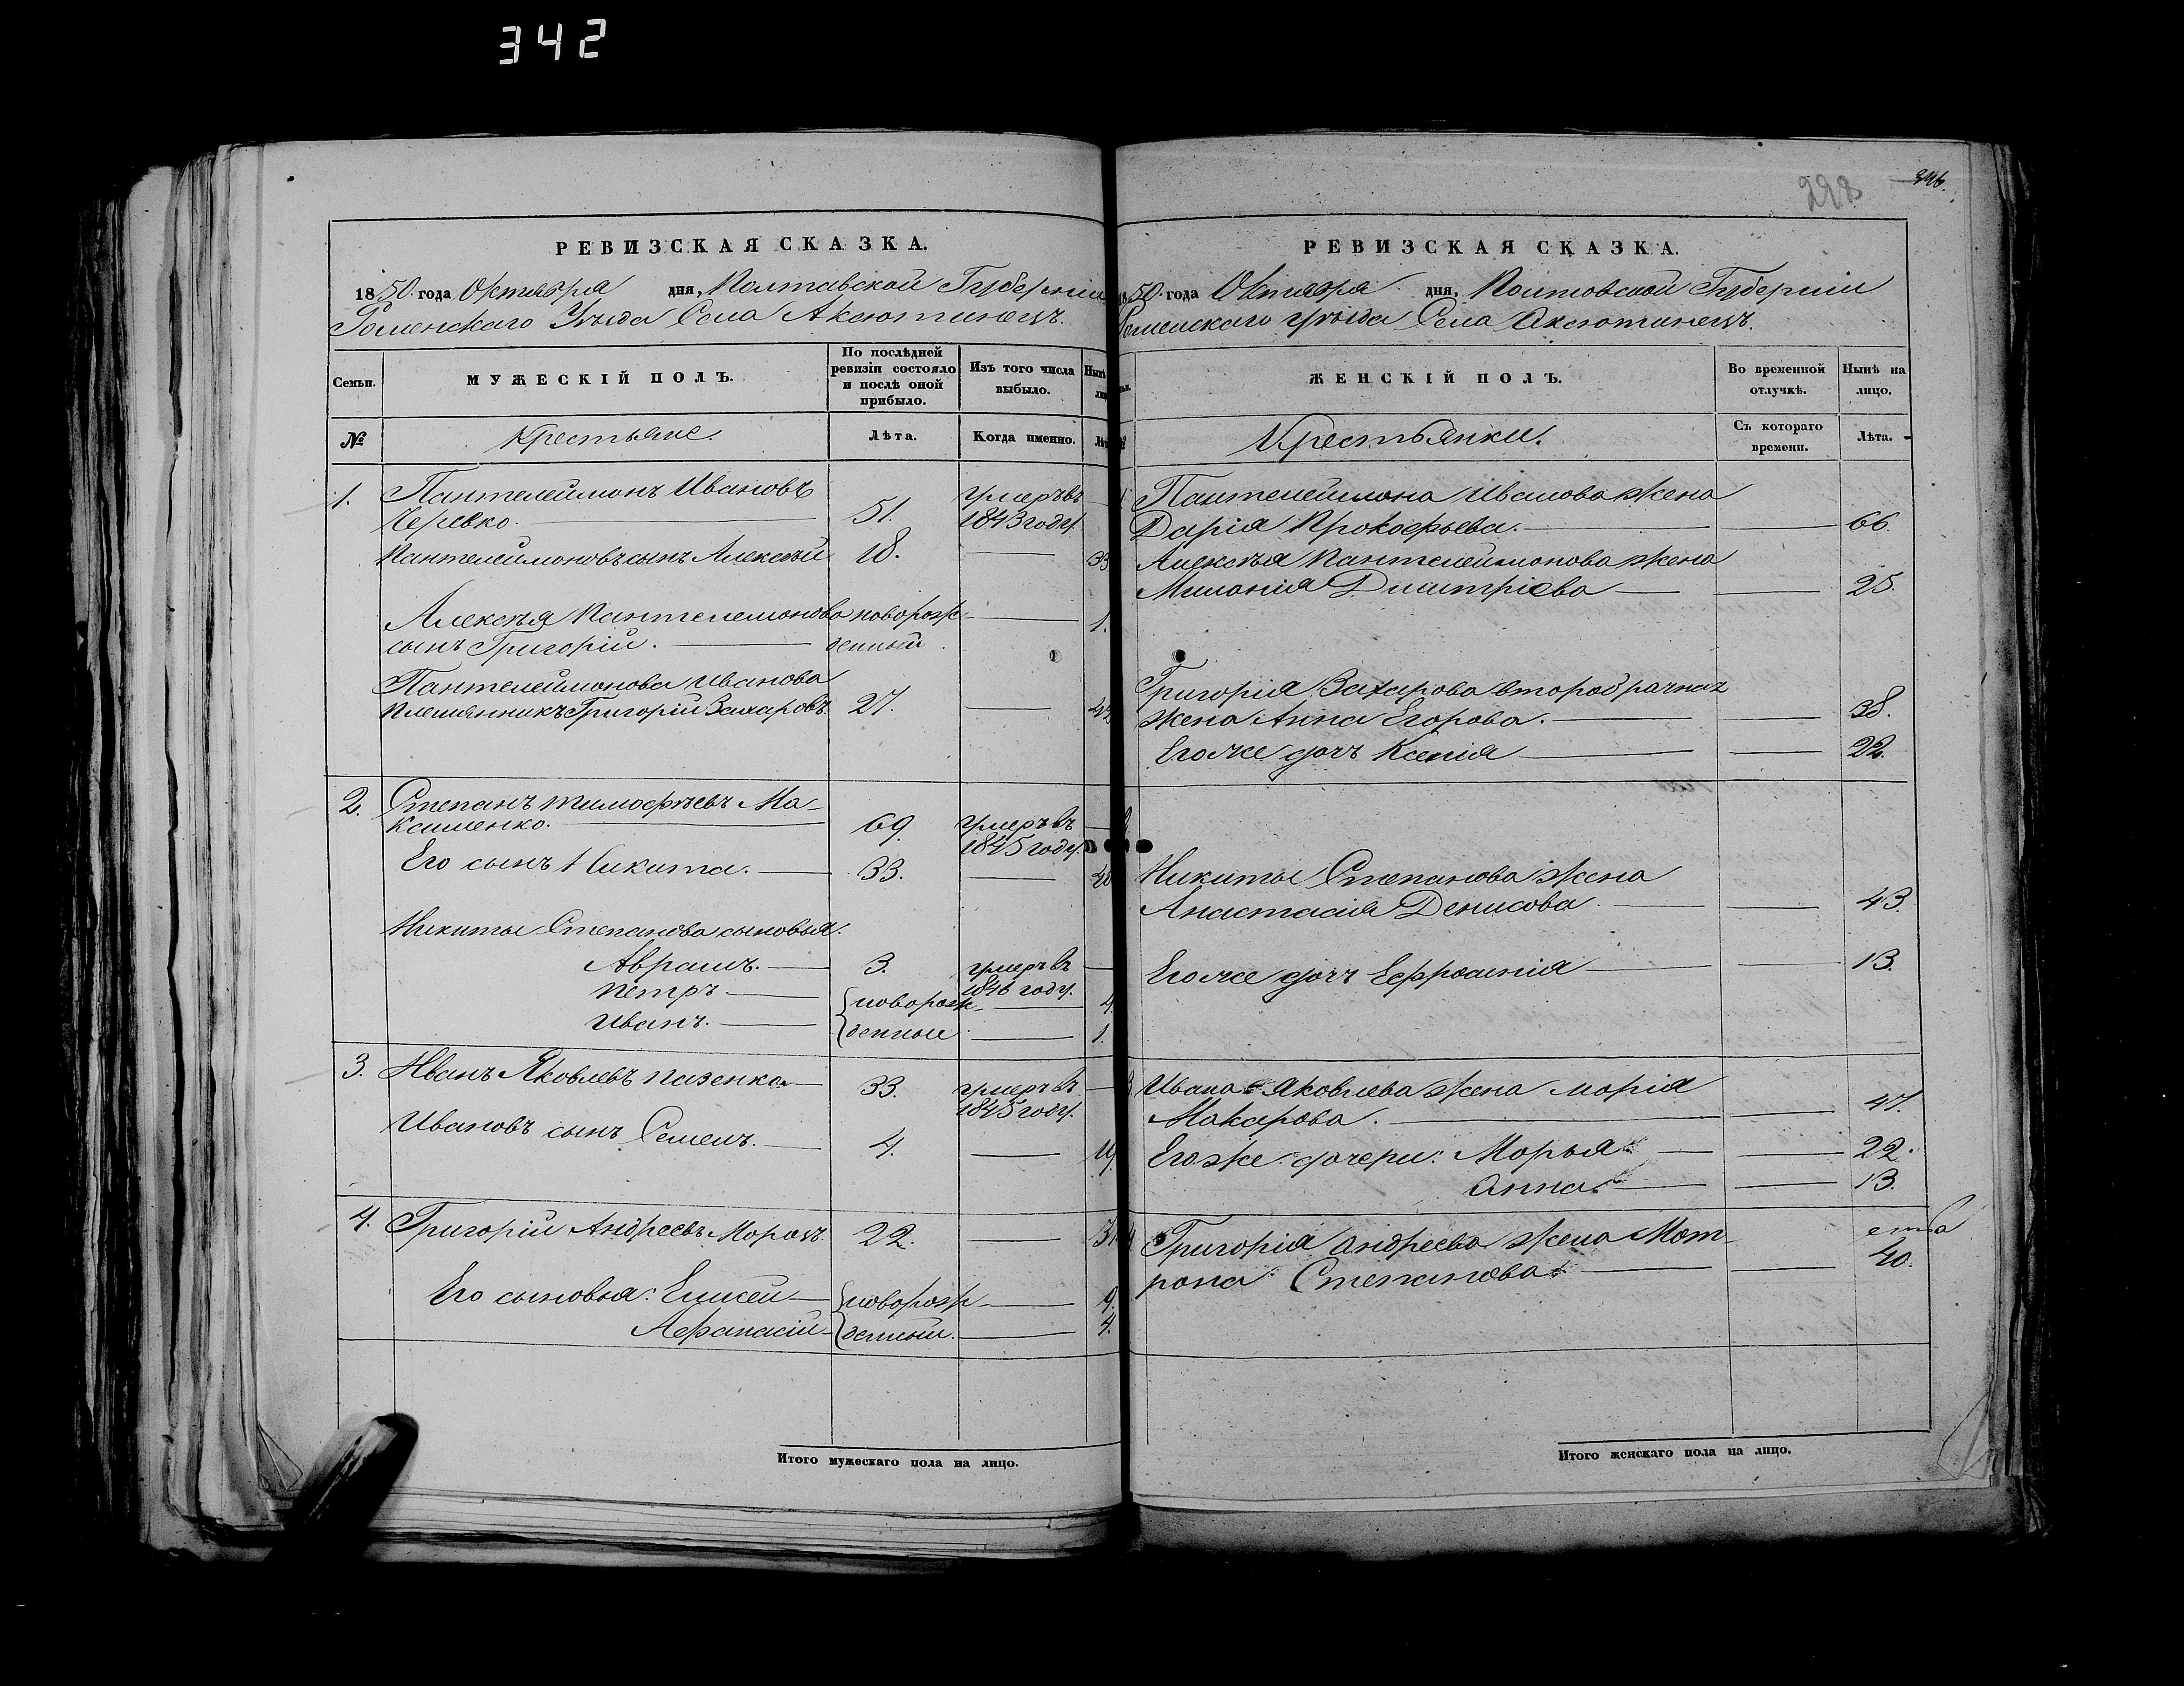 342
РЕВИЗСКАЯ СКАЗКА.
1850. года Октября дня, Полтавской Губерніи
Роменскаго Уѣзда Села Аксютинецъ.
Семьи.
МУЖЕСКІЙ ПОЛЪ.
По послѣдней ревизіи состояло и послѣ оной прибыло.
Изъ того числа выбыло.
№
Крестьяне.
Лѣта.
Когда именно.
1. Пантелеймонъ Ивановъ умеръ въ
Черевко. 51. 1843 году.
Пантелеймоновъ сынъ Алексѣй 18. 33
Алексѣя Пантелемонова новорож- 1.
сынъ Григорій. денный
Пантелеймонова Иванова
племянникъ Григорій Захаровъ. 27. 42
2. Степанъ Тимофѣевъ Ма-
ксименко. 69. умеръ въ
1845 году.
Его сынъ Никита. 33.
Никиты Степанова сыновья.
Аврамъ. 3. умеръ въ
1846 году.
Петръ новорож- 4.
Иванъ. денные 1.
3. Иванъ Яковлевъ Пазенко 33. умеръ въ
1845 году.
Ивановъ сынъ Семенъ. 4.
4. Григорій Андреевъ Морозъ. 22. 31
Его сыновья: Елисей новорож- 9.
Афанасій денныи. 4.
Итого мужескаго пола на лицо.
298 346.
РЕВИЗСКАЯ СКАЗКА.
1850. года Октября дня, Полтовской Губерніи
Роменскаго уѣзда Села Аксютинецъ.
ЖЕНСКІЙ ПОЛЪ.
Во временной отлучкѣ.
Нынѣ на лицо.
Крестьянки.
Съ котораго времени.
Лѣта.
Пантелеймона Иванова жена
Дарія Прокофьева. 66.
Алексѣя Пантелеймонова жена
Миланія Дмитріева 25.
Григорія Захарова второбрачная
жена Анна Егорова. 38.
Его же дочь Ксенія 22.
Никиты Степанова жена
Анастасія Денисова. 43.
Его же дочь Ефросинія 13.
Ивана Яковлева жена Марія
Макарова. 47.
Его же дочери: Марья 22.
Анна 13.
4 Григорія Андреева жена Мот-
рона Степанова 40.
Итого женскаго пола на лицо.